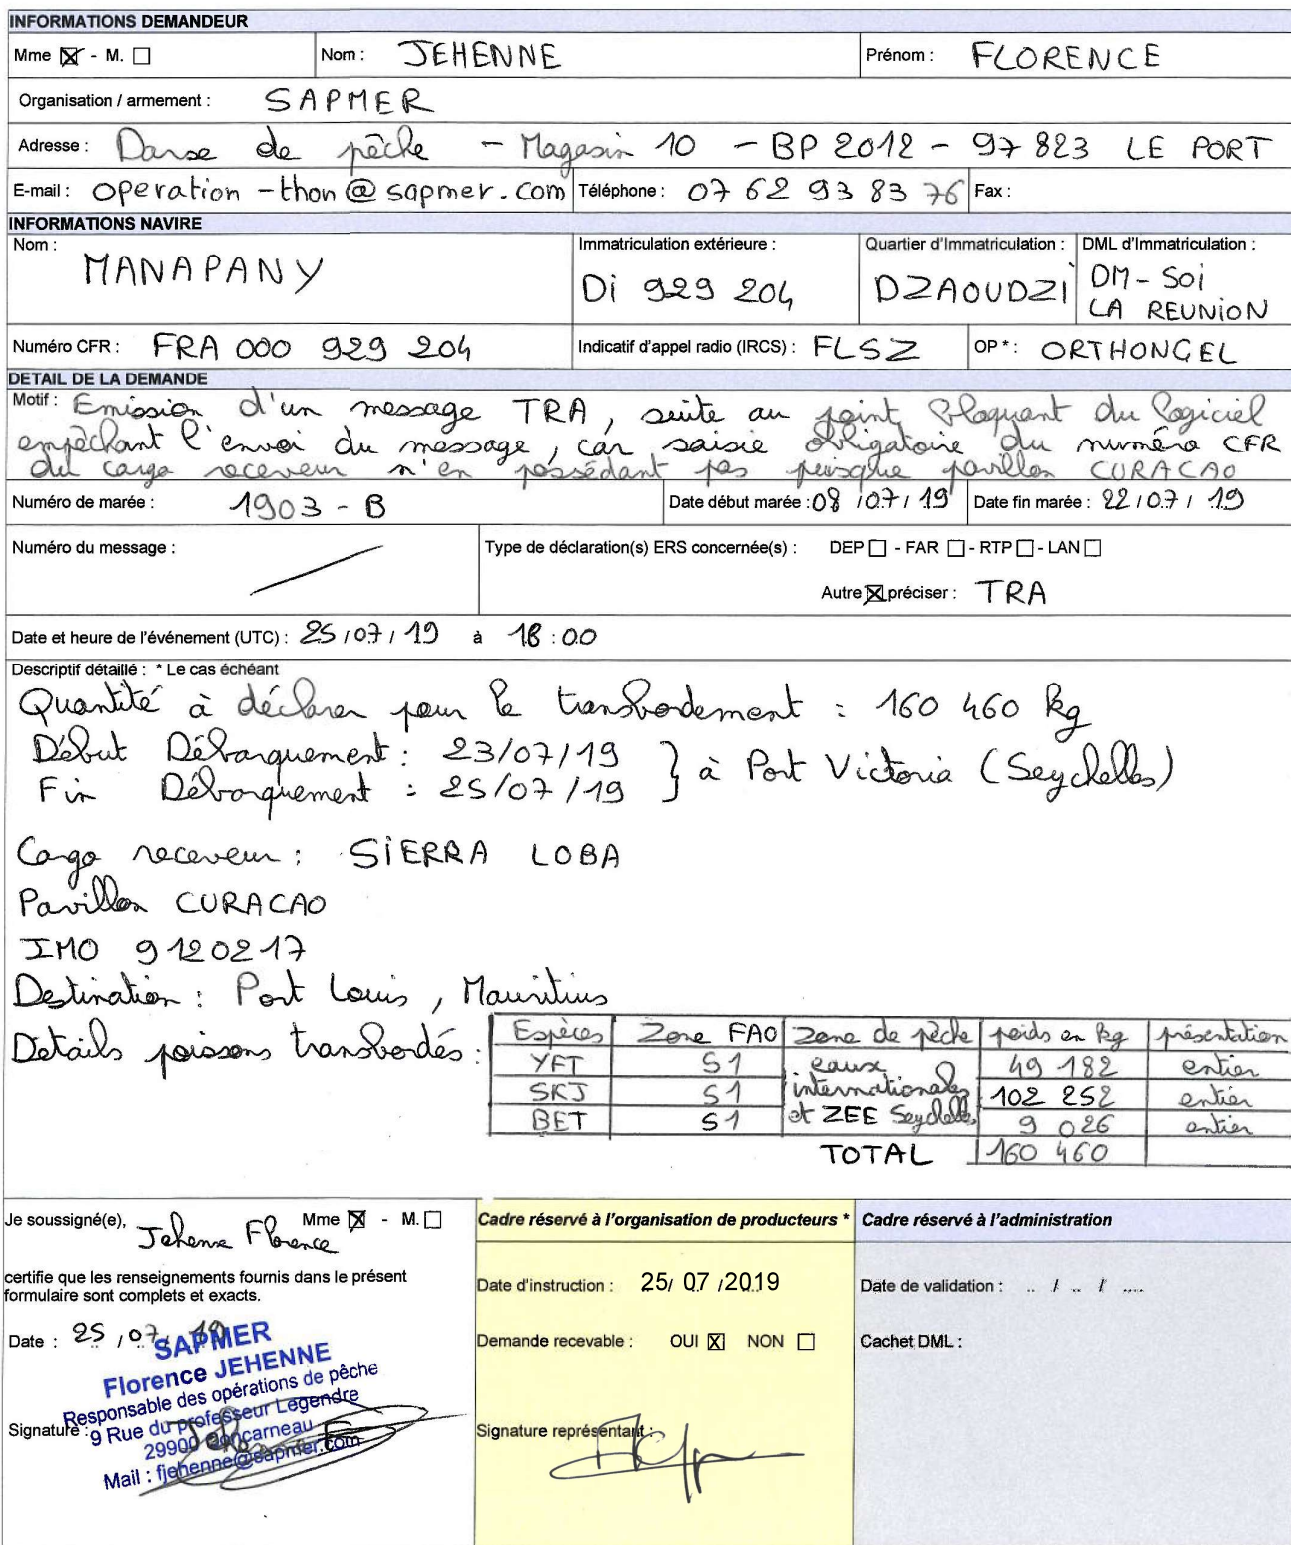 INFORMATIONS DEMANDEUR
Mme ☒ - M. ☐ Nom : JEHENNE Prénom : FLORENCE
Organisation / armement : SAPMER
Adresse : Darse de pêche - Magasin 10 - BP 2012 - 97 823 LE PORT
E-mail : operation-thon@sapmer.com Téléphone : 07 62 93 83 76 Fax :
INFORMATIONS NAVIRE
Nom : MANAPANY Immatriculation extérieure : Di 929 204 Quartier d'Immatriculation : DZAOUDZI DML d'Immatriculation : DM-Soi
LA REUNION
Numéro CFR : FRA 000 929 204 Indicatif d'appel radio (IRCS) : FLSZ OP * : ORTHONGEL
DETAIL DE LA DEMANDE
Motif : Emission d'un message TRA, suite au point bloquant du logiciel
empêchant l'envoi du message, car saisie obligatoire du numéro CFR
du cargo receveur n'en possédant pas puisque pavillon CURACAO
Numéro de marée : 1903 - B Date début marée : 08 / 07 / 19 Date fin marée : 22 / 07 / 19
Numéro du message : Type de déclaration(s) ERS concernée(s) : DEP ☐ - FAR ☐ - RTP ☐ - LAN ☐
Autre ☒ préciser : TRA
Date et heure de l'événement (UTC) : 25 / 07 / 19 à 18 : 00
Descriptif détaillé : * Le cas échéant
Quantité à déclarer pour le transbordement : 160 460 kg
Début Débarquement : 23/07/19 } à Port Victoria (Seychelles)
Fin Débarquement : 25/07/19
Cargo receveur : SIERRA LOBA
Pavillon CURACAO
IMO 9120217
Destination : Port Louis, Mauritius
Détails poissons transbordés :
Espèces Zone FAO Zone de pêche poids en kg présentation
YFT 51 eaux 49 182 entier
SKJ 51 internationales 102 252 entier
BET 51 et ZEE Seychelles 9 026 entier
TOTAL 160 460
Je soussigné(e), Jehenne Florence Mme ☒ - M. ☐
certifie que les renseignements fournis dans le présent
formulaire sont complets et exacts.
Date : 25 / 07 / 19
SAPMER
Florence JEHENNE
Responsable des opérations de pêche
9 Rue du professeur Legendre
29900 Concarneau
Mail : fjehenne@sapmer.com
Signature :
Cadre réservé à l'organisation de producteurs *
Date d'instruction : 25/ 07 /2019
Demande recevable : OUI ☒ NON ☐
Signature représentant :
Cadre réservé à l'administration
Date de validation : .. / .. / ....
Cachet DML :